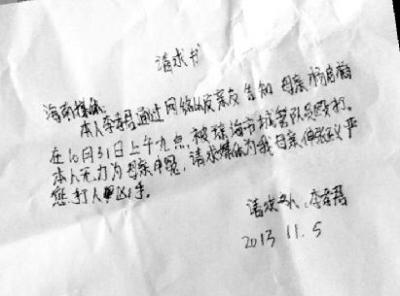 请求书
海南媒体:
本人李 通过网络以及亲友告知 母亲杨
在10月31日上午九点,被琼海市城管队员殴打。
本人无力为母亲申冤,请求媒体为我母亲伸张正严
惩打人凶手。
请求人:李
2013 11.5